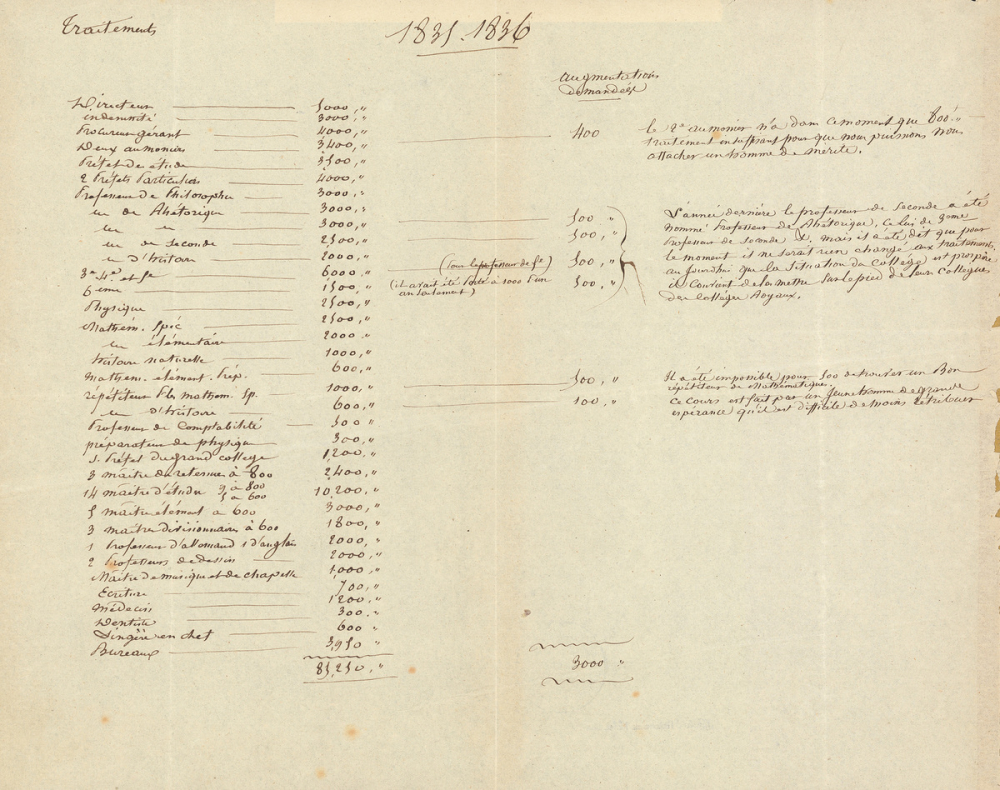 Traitements
1835.1836
augmentations
demandées
Directeur 5000,"
indemnité 3000,"
Procureur gérant 4000,"
Deux aumoniers 3400,"
400
le 2d aumonier n'a dans ce moment que 800"
traitement insuffisant pour que nous puissions nous
attacher un homme de mérite.
Préfet des études 3500,"
2 Préfets Particuliers 4000,"
Professeur de Philosophie 3000,"
id de Rhétorique 3000,"
id id 3000,"
500 "
id de Seconde 2500,"
500,"
id d'histoire 2000,"
3e 4e et 5e 6000,"
(pour le professeur de 5e)
500,"
6eme 1500,"
(il avait été porté à 1000 l'un
500,"
L'année dernière le professeur de Seconde a été
nommé Professeur de Rhétorique, celui de 3eme
Professeur de Seconde &, mais il a été dit que pour
le moment il ne serait rien changé aux traitements
aujourdhui que la Situation du Collège est prospère
il Convient de les mettre sur le pied de leurs Collègues
des Collèges Royaux.
Physique 2500,"
Mathém. Spéc 2500,"
id élémentaire 2000 "
histoire naturelle 1000,"
Mathém. élément. Prép. 600,"
répétiteur mathem. Sp. 1000,"
500,"
Il a été impossible pour 500 de trouver un Bon
répétiteur de Mathématique.
id d'histoire 600,"
100,"
ce Cours est fait par un jeune homme de grande
espérance qu'il est difficile de moins rétribuer
Professeur de Comptabilité 500 "
préparateur de physique 300,"
S. Préfet du grand college 1200 "
3 maîtres de retenue à 800 2400,"
14 maîtres d'étude 9 à 800
5 à 600
10,200,"
5 maîtres élément à 600 3000,"
3 maîtres divisionnaires à 600 1800,"
1 Professeur d'allemand 1 d'anglais 2000,"
2 Professeurs de dessin 2000,"
Maître de musique et de chapelle 1000,"
Ecriture 700,"
Médecin 1200 "
Dentiste 300."
Lingère en chef 600 "
Bureaux 3,950 "
85,250,"
3000 "